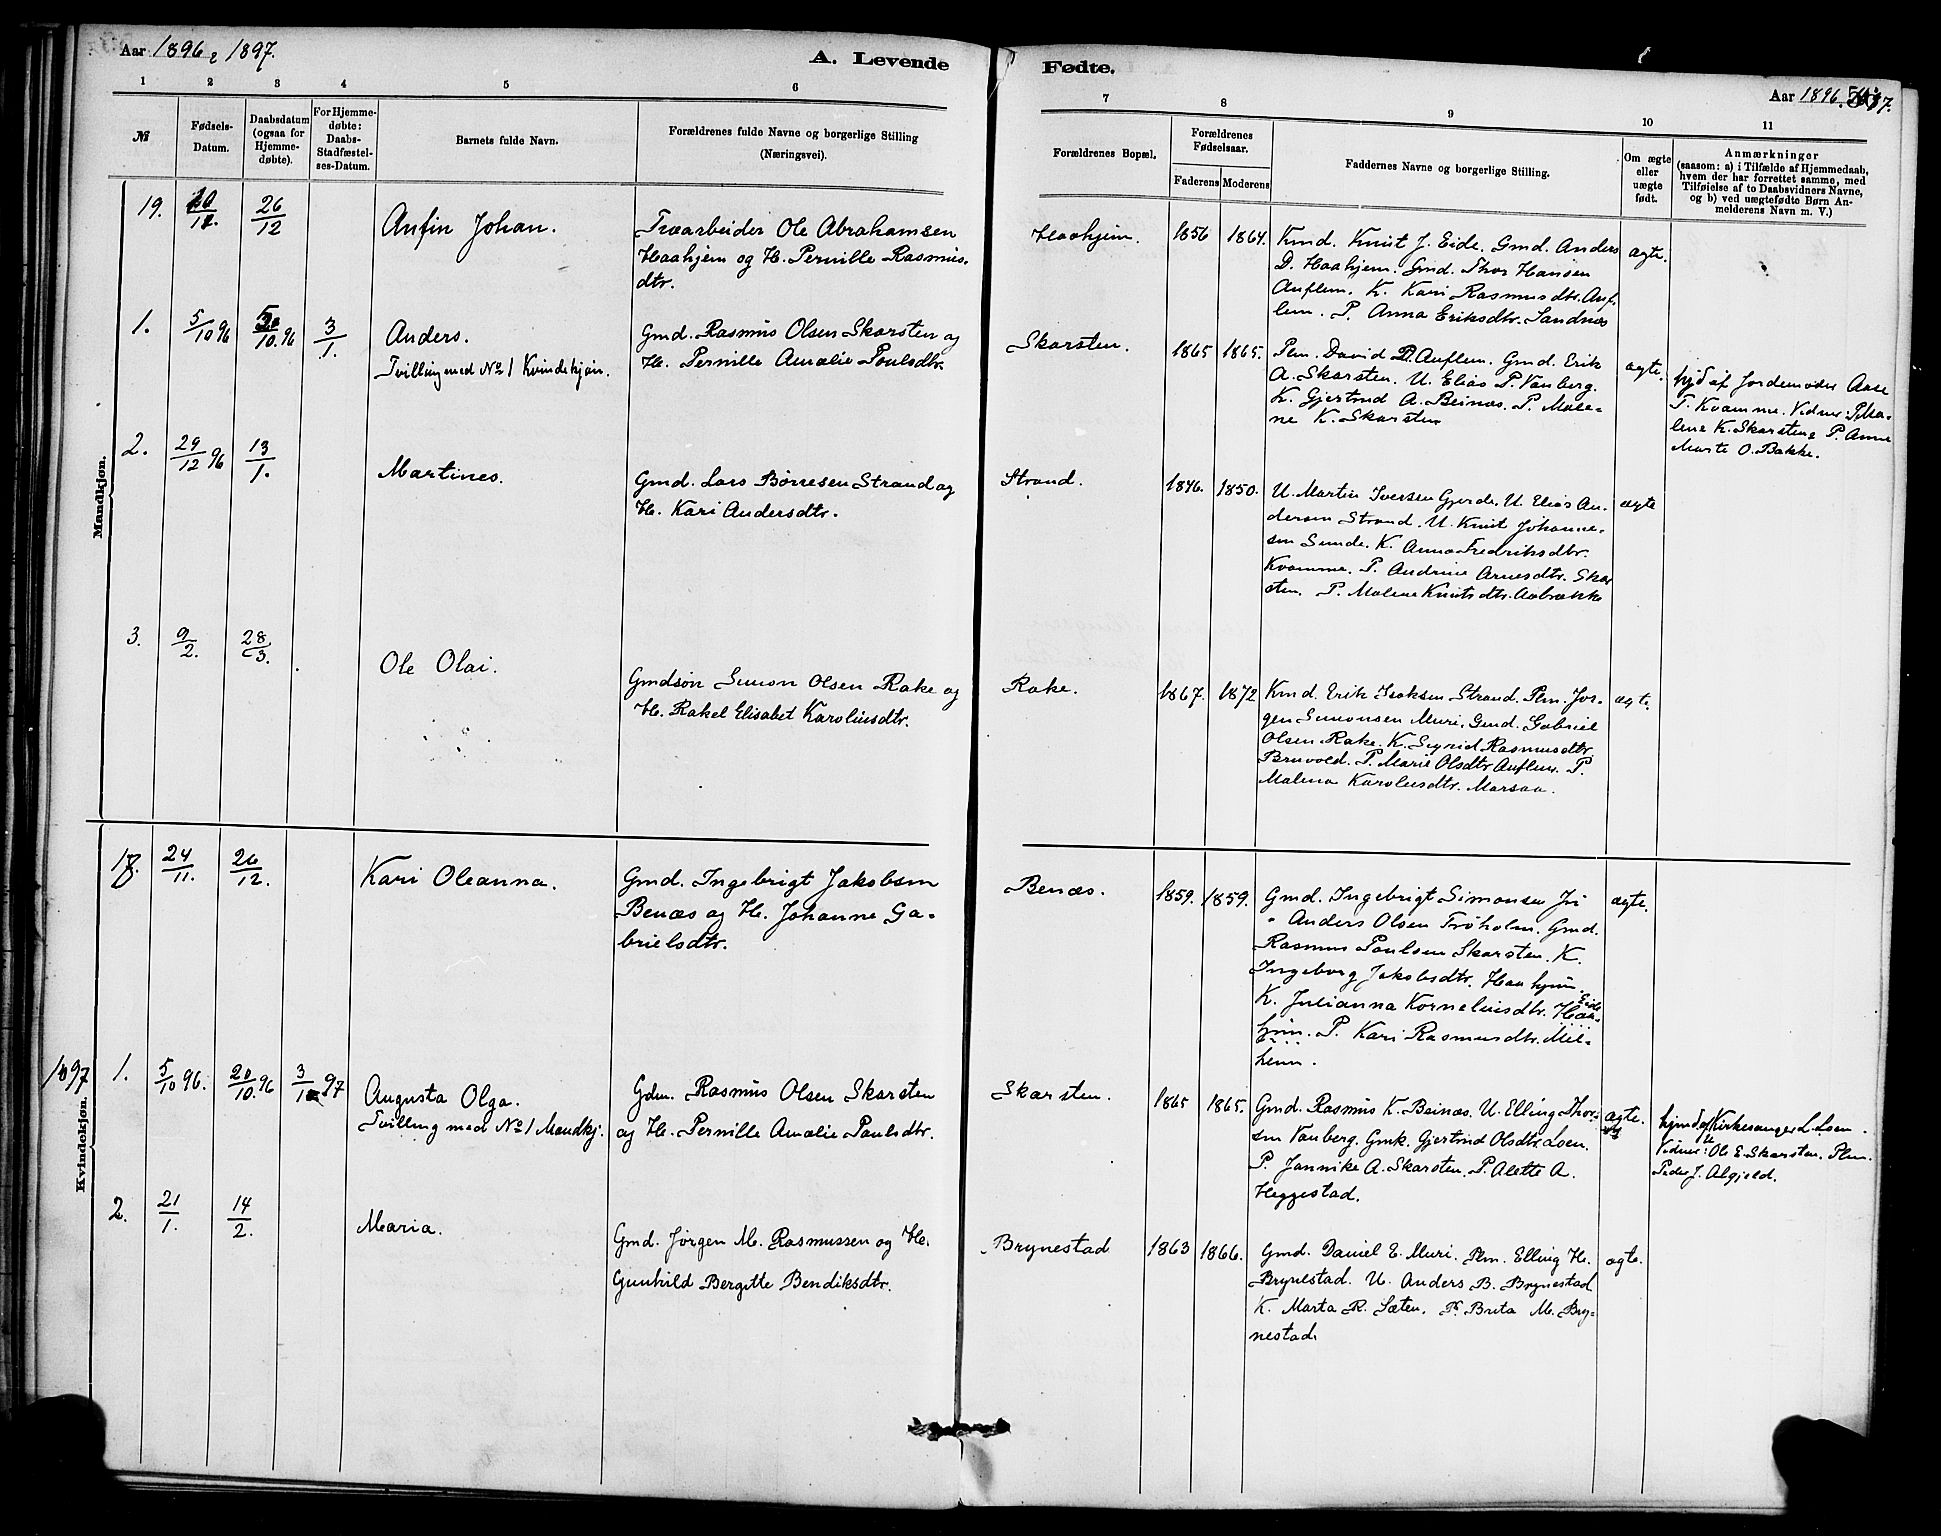 Aar 1896 & 1897.
A. Levende
Fødte.
Aar 1896. 97.
1 2 3 4 5 6
7 8 9 10 11
№
Fødsels-
Datum.
Daabsdatum
(ogsaa for
Hjemme-
døbte).
For Hjemme-
døbte:
Daabs-
Stadfæstel-
ses-Datum.
Barnets fulde Navn.
Forældrenes fulde Navne og borgerlige Stilling
(Næringsvei).
Forældrenes Bopæl.
Forældrenes
Fødselsaar.
Faderens Moderens
Faddernes Navne og borgerlige Stilling.
Om ægte
eller
uægte
født.
Anmærkninger
(saasom: a) i Tilfælde af Hjemmedaab,
hvem der har forrettet samme, med
Tilføielse af to Daabsvidners Navne,
og b) ved uægtefødte Børn An-
melderens Navn m. V.)
Mandkjøn.
19. 26/12
Anfin Johan.
Træarbeider Ole Abrahamsen
Haahjem og H. Pernille Rasmus-
dtr.
Haahjem.
1856 1864.
Kmd. Knut J. Eide. Gmd. Anders
D. Haahjem. Gmd. Thor Hansen
Auflem. K. Kari Rasmusdtr. Auf-
lem. P. Anna Eriksdtr. Sandnes
ægte.
1. 5/10 96 10. 96 3/1.
Anders.
Tvilling med No 1 Kvindekjøn.
Gmd. Rasmus Olsen Skarsten og
H. Pernille Amalie Poulsdtr.
Skarsten.
1865 1865.
Plm. David Auflem. Gmd. Erik
A. Skarsten. U. Elias P. Vanberg.
K. Gjertrud A. Beinæs. P. Male-
ne K. Skarsten
ægte.
hjd af Jordemoder Aase
T. Kvamme. Vidner: P. Ma-
lene K. Skarsten & P. Anne
Marte O. Bakke.
2. 29/12 96 13/1.
Martines.
Gmd. Lars Børresen Strand og
H. Kari Andersdtr.
Strand.
1846. 1850.
U. Martin Iversen Gjerde. U. Elias An-
dersen Strand. U. Knut Johanne-
sen Sunde. K. Anna Fredriksdtr.
Kvamme. P. Andrine Arnesdtr. Skar
sten. P. Malene Knutsdtr. Aabrække
ægte
3. 9/2. 28/3.
Ole Olai.
Gmdsøn Simon Olsen Rake og
H. Rakel Elisabet Karolusdtr.
Rake.
1867. 1872
Kmd. Erik Isaksen Strand. Plm. Jør-
gen Simonsen Muri. Gmd. Gabriel
Olsen Rake. K. Sigrid Rasmusdtr.
Bruvold. P. Marie Olsdtr Auflem. P.
Malena Karolusdtr. Marsaa.
ægte.
18. 24/11. 26/12.
Kari Oleanna.
Gmd. Ingebrigt Jakobsen
Benæs og H. Johanne Ga-
brielsdtr.
Benæs.
1859. 1859.
Gmd. Ingebrigt Simonsen
" Anders Olsen Trøholm. Gmd.
Rasmus Paulsen Skarsten. K.
Ingeborg Jakobsdtr. Haahjem.
K. Julianna Korneliusdtr. Haa-
Eide
hjem. P. Kari Rasmusdtr. Mel-
hem.
ægte.
1897
Kvindekjøn.
1. 5/10 96. 20/10. 96 3/1 97
Augusta Olga.
Tvilling med No 1 Mandkj.
Gdm. Rasmus Olsen Skarsten
og H. Pernille Amalie Paulsdtr.
Skarsten.
1865 1865.
Gmd. Rasmus K. Beinæs. U. Elling Thor-
sen Vanberg. Gmk. Gjertrud Olsdtr. Loen.
P. Jannike A. Skarsten. P. Alette A.
Heggestad.
ægte.
hjemd af Kirkesanger L. Loen.
Vidner: Ole E. Skarsten. Plm.
Peder J. Algjeld.
2. 21/1. 14/2.
Maria.
Gmd. Jørgen M. Rasmussen og H.
Gunhild Bergitte Bendiksdtr.
Brynestad
1863 1866.
Gmd. Daniel E. Muri. Plm. Elling H.
Brynestad. U. Anders B. Brynestad
K. Marta R. Sæten. P. Brita M. Bry-
nestad.
ægte.